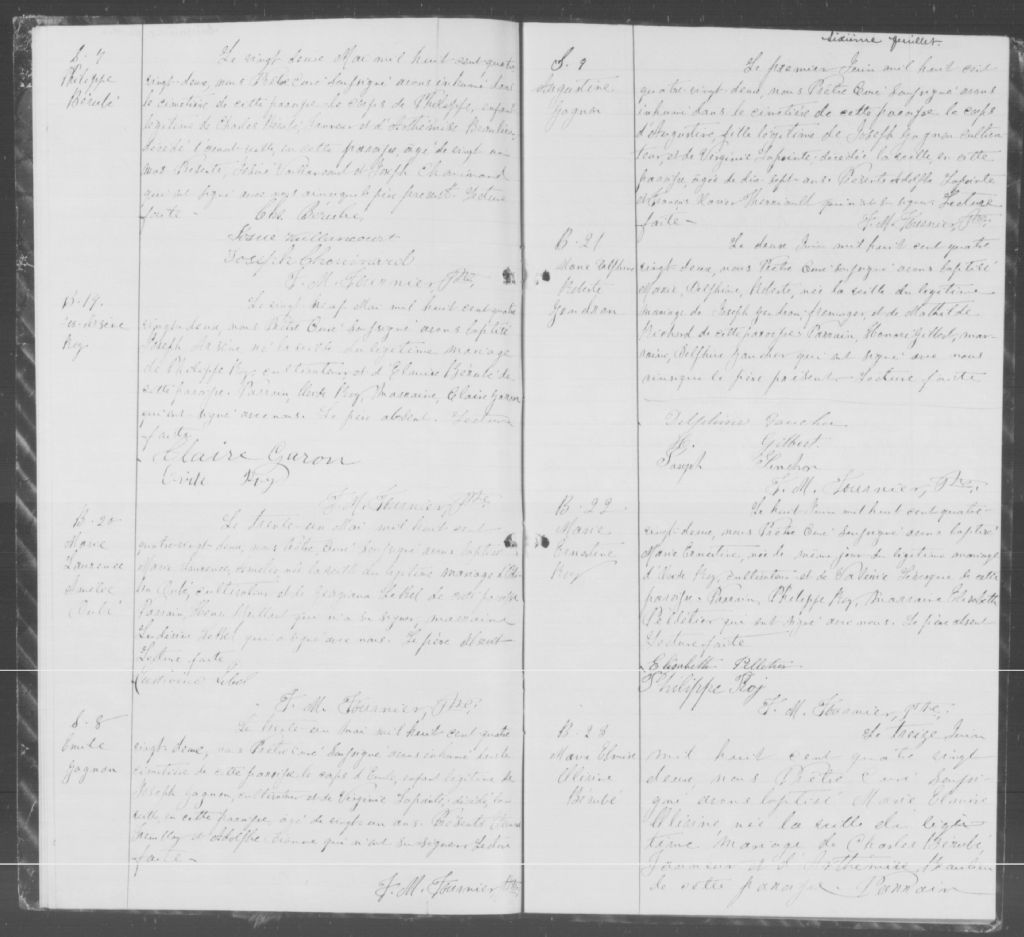 S. 7
Philippe
Bérubé
Le vingt deux Mai mil huit cent quatre
vingt-deux, nous Prêtre Curé soussigné avons inhumé dans
le cimetière de cette paroisse le corps de Philippe, enfant
légitime de Charles Bérubé, tanneur et d'Arthémise Beaulieu
décédé en cette paroisse, âgé de vingt un
mois Présents, et Joseph Chouinard
qui ont signé avec nous ainsi que le père présent. Lecture
faite -
Chs. Bérubé
Joseph Chouinard
F. M. Fournier, Ptre;
B. 19.
Jos-Arsène
Roy
Le vingt neuf Mai mil huit cent quatre
vingt-deux, nous Prêtre Curé soussigné avons baptisé
Joseph Arsène, né la veille du légitime mariage
de Philippe Roy, cultivateur et d'Elmire Bérubé de
cette paroisse. Parrain, Roy, Marraine, Claire Garon
qui ont signé avec nous. Le père absent. Lecture
faite
Claire Garon
Roy
F. M. Fournier, Ptre;
B. 20
Marie
Laurence
Amélie
Le trente un Mai mil huit cent
quatre vingt-deux, nous Prêtre Curé soussigné avons baptisé
Marie Laurence, Amélie née la veille du légitime mariage
cultivateur et de Georgiana Lebel de cette paroisse
Parrain, qui n'a su signer, marraine
Ludivine Lebel qui a signé avec nous. Le père absent
Lecture faite
Ludivine Lebel
F. M. Fournier, Ptre;
S. 8
Emile
Gagnon
Le trente un Mai mil huit cent quatre
vingt-deux, nous Prêtre Curé soussigné avons inhumé dans le
cimetière de cette paroisse le corps d'Emile, enfant légitime de
Joseph Gagnon, cultivateur et de Virginie Lapointe, décédé la
veille en cette paroisse, âgé de vingt un ans. Présents
et Adolphe qui n'ont su signer. Lecture
faite -
F. M. Fournier, Ptre
Sixième feuillet.
S. 9
Augustine
Gagnon
Le premier Juin mil huit cent
quatre vingt deux, nous Prêtre Curé soussigné avons
inhumé dans le cimetière de cette paroisse le corps
d'Augustine, fille légitime de Joseph Gagnon cultiva
teur, et de Virginie Lapointe décédée la veille, en cette
paroisse, âgée de dix sept ans. Présents Adolphe Lapointe
et François Xavier Therriault qui n'ont su signer Lecture
faite -
F. M. Fournier, Ptre;
B. 21
Marie Delphine
Roberte
Gendron
Le deux Juin mil huit cent quatre
vingt-deux, nous Prêtre Curé soussigné avons baptisé
Marie, Delphine, Roberte, née la veille du légitime
mariage de Joseph Gendron fromager, et de Mathilde
Richard de cette paroisse. Parrain, Honoré Gilbert, mar
raine, Delphine Gaucher qui ont signé avec nous
ainsi que le père présent. Lecture faite
Delphine Gaucher
H. Gilbert
Joseph
F. M. Fournier, Ptre;
B. 22
Marie
Ernestine
Roy
Le huit Juin mil huit cent quatre
vingt-deux, nous Prêtre Curé soussigné avons baptisé
Marie Ernestine, née le même jour du légitime mariage
Roy, cultivateur et de Levesque de cette
paroisse. Parrain, Philippe Roy, Marraine Elisabeth
Pelletier qui ont signé avec nous. Le père absent
Lecture faite
Elisabeth Pelletier
Philippe Roy
F. M. Fournier, Ptre;
B. 23
Marie Elmire
Alixine
Bérubé
Le treize Juin
mil huit cent quatre vingt
deux, nous Prêtre Curé soussi-
gné avons baptisé Marie Elmire
Alixine, née la veille du légi
time mariage de Charles Bérubé,
tanneur et d'Arthémise Beaulieu
de cette paroisse. Parrain